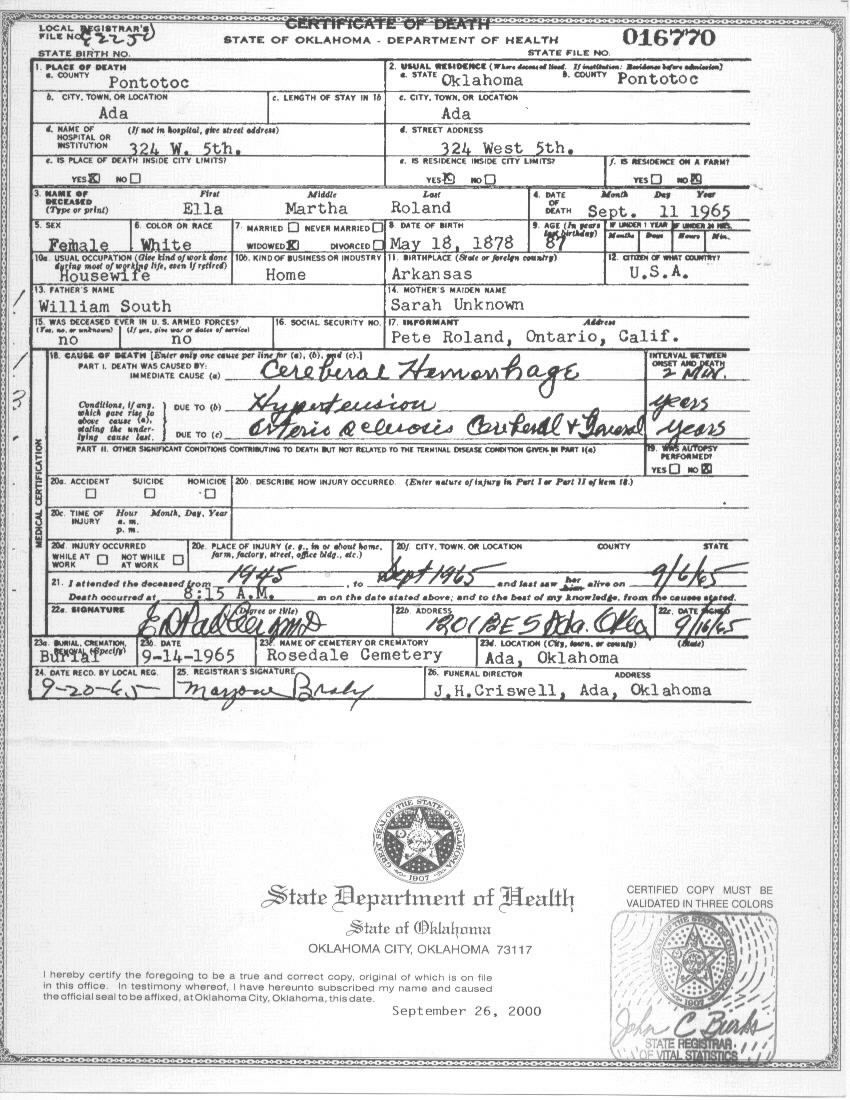 CERTIFICATE OF DEATH
LOCAL REGISTRAR'S
FILE NO.
STATE OF OKLAHOMA - DEPARTMENT OF HEALTH
016770
STATE BIRTH NO.
STATE FILE NO.
1. PLACE OF DEATH
a. COUNTY
Pontotoc
2. USUAL RESIDENCE (Where deceased lived. If institution: Residence before admission)
a. STATE
Oklahoma
b. COUNTY
Pontotoc
b. CITY, TOWN, OR LOCATION
Ada
c. LENGTH OF STAY IN 1b
c. CITY, TOWN, OR LOCATION
Ada
d. NAME OF (If not in hospital, give street address)
HOSPITAL OR
INSTITUTION
324 W. 5th.
d. STREET ADDRESS
324 West 5th.
e. IS PLACE OF DEATH INSIDE CITY LIMITS?
YES X NO
e. IS RESIDENCE INSIDE CITY LIMITS?
YES X NO
f. IS RESIDENCE ON A FARM?
YES NO X
3. NAME OF DECEASED
(Type or print)
First Middle Last
Ella Martha Roland
4. DATE OF DEATH
Month Day Year
Sept. 11 1965
5. SEX
Female
6. COLOR OR RACE
White
7. MARRIED NEVER MARRIED
WIDOWED X DIVORCED
8. DATE OF BIRTH
May 18, 1878
9. AGE (In years last birthday)
87
IF UNDER 1 YEAR IF UNDER 24 HRS.
Months Days Hours Min.
10a. USUAL OCCUPATION (Give kind of work done
during most of working life, even if retired)
Housewife
10b. KIND OF BUSINESS OR INDUSTRY
Home
11. BIRTHPLACE (State or foreign country)
Arkansas
12. CITIZEN OF WHAT COUNTRY?
U.S.A.
13. FATHER'S NAME
William South
14. MOTHER'S MAIDEN NAME
Sarah Unknown
15. WAS DECEASED EVER IN U. S. ARMED FORCES?
(Yes, no, or unknown) (If yes, give war or dates of service)
no no
16. SOCIAL SECURITY NO.
17. INFORMANT Address
Pete Roland, Ontario, Calif.
MEDICAL CERTIFICATION
18. CAUSE OF DEATH [Enter only one cause per line for (a), (b), and (c).]
INTERVAL BETWEEN
ONSET AND DEATH
PART I. DEATH WAS CAUSED BY:
IMMEDIATE CAUSE (a)
Cereberal Hemorrhage
2 Min.
Conditions, if any,
which gave rise to
above cause (a),
stating the under-
lying cause last.
DUE TO (b)
Hypertension
years
DUE TO (c)
Arterio sclerosis Cereberal & General
years
PART II. OTHER SIGNIFICANT CONDITIONS CONTRIBUTING TO DEATH BUT NOT RELATED TO THE TERMINAL DISEASE CONDITION GIVEN IN PART I(a)
19. WAS AUTOPSY
PERFORMED?
YES NO X
20a. ACCIDENT SUICIDE HOMICIDE
20b. DESCRIBE HOW INJURY OCCURRED. (Enter nature of injury in Part I or Part II of item 18.)
20c. TIME OF INJURY
Hour Month, Day, Year
a. m.
p. m.
20d. INJURY OCCURRED
WHILE AT WORK NOT WHILE AT WORK
20e. PLACE OF INJURY (e. g., in or about home,
farm, factory, street, office bldg., etc.)
20f. CITY, TOWN, OR LOCATION COUNTY STATE
21. I attended the deceased from 1945, to Sept 1965 and last saw her him alive on 9/6/65
Death occurred at 8:15 A.M. m on the date stated above; and to the best of my knowledge, from the causes stated.
22a. SIGNATURE (Degree or title)
MD
22b. ADDRESS
Ada. Okla
22c. DATE SIGNED
9/16/65
23a. BURIAL, CREMATION,
REMOVAL (Specify)
Burial
23b. DATE
9-14-1965
23c. NAME OF CEMETERY OR CREMATORY
Rosedale Cemetery
23d. LOCATION (City, town, or county) (State)
Ada, Oklahoma
24. DATE RECD. BY LOCAL REG.
9-20-65
25. REGISTRAR'S SIGNATURE
26. FUNERAL DIRECTOR ADDRESS
J.H.Criswell, Ada, Oklahoma
GREAT SEAL OF THE STATE OF OKLAHOMA
1907
State Department of Health
State of Oklahoma
OKLAHOMA CITY, OKLAHOMA 73117
CERTIFIED COPY MUST BE
VALIDATED IN THREE COLORS
I hereby certify the foregoing to be a true and correct copy, original of which is on file
in this office. In testimony whereof, I have hereunto subscribed my name and caused
the official seal to be affixed, at Oklahoma City, Oklahoma, this date.
September 26, 2000
John C Burks
STATE REGISTRAR
OF VITAL STATISTICS